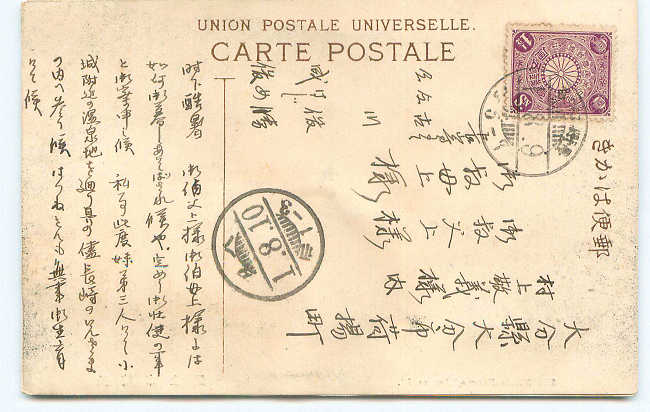 UNION POSTALE UNIVERSELLE.
CARTE POSTALE
きかは便郵
大分縣大分市荷揚町
村上敬義様内
御叔父上様
御叔母上様
時下酷暑 御伯父上様御伯母上様には
如何御暮しあそばされ候や、定めし御壮健の事
と御察し申し候 私事此度妹弟三人にて小
城附近の温泉地を廻り其の儘長崎の兄さま
の内へ参り候 はつねさんも無事御生育
にて候
1.8.10